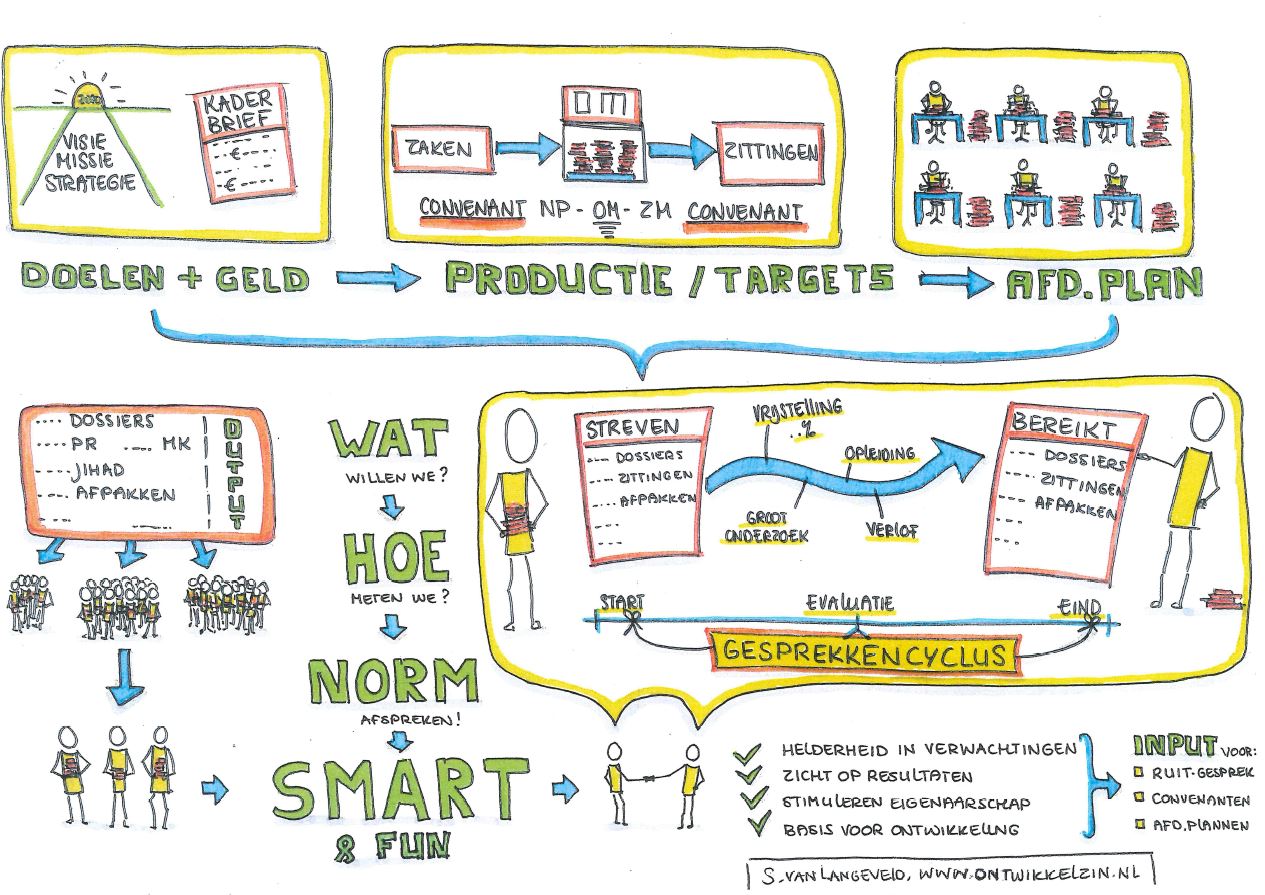 2020
VISIE
MISSIE
STRATEGIE
KADER
BRIEF
€
€
ZAKEN
OM
ZITTINGEN
CONVENANT NP - OM - ZM CONVENANT
DOELEN + GELD
PRODUCTIE / TARGETS
AFD. PLAN
.... DOSSIERS
.... PR .... MK
.... JIHAD
.... AFPAKKEN
OUTPUT
WAT
WILLEN WE?
HOE
METEN WE?
NORM
AFSPREKEN!
SMART
& FUN
STREVEN
---- DOSSIERS
---- ZITTINGEN
---- AFPAKKEN
VRIJSTELLING
..%
OPLEIDING
GROOT
ONDERZOEK
VERLOF
BEREIKT
---- DOSSIERS
---- ZITTINGEN
---- AFPAKKEN
START
EVALUATIE
EIND
GESPREKKENCYCLUS
HELDERHEID IN VERWACHTINGEN
ZICHT OP RESULTATEN
STIMULEREN EIGENAARSCHAP
BASIS VOOR ONTWIKKELING
INPUT VOOR:
RUIT-GESPREK
CONVENANTEN
AFD. PLANNEN
S. VAN LANGEVELD, WWW.ONTWIKKELZIN.NL